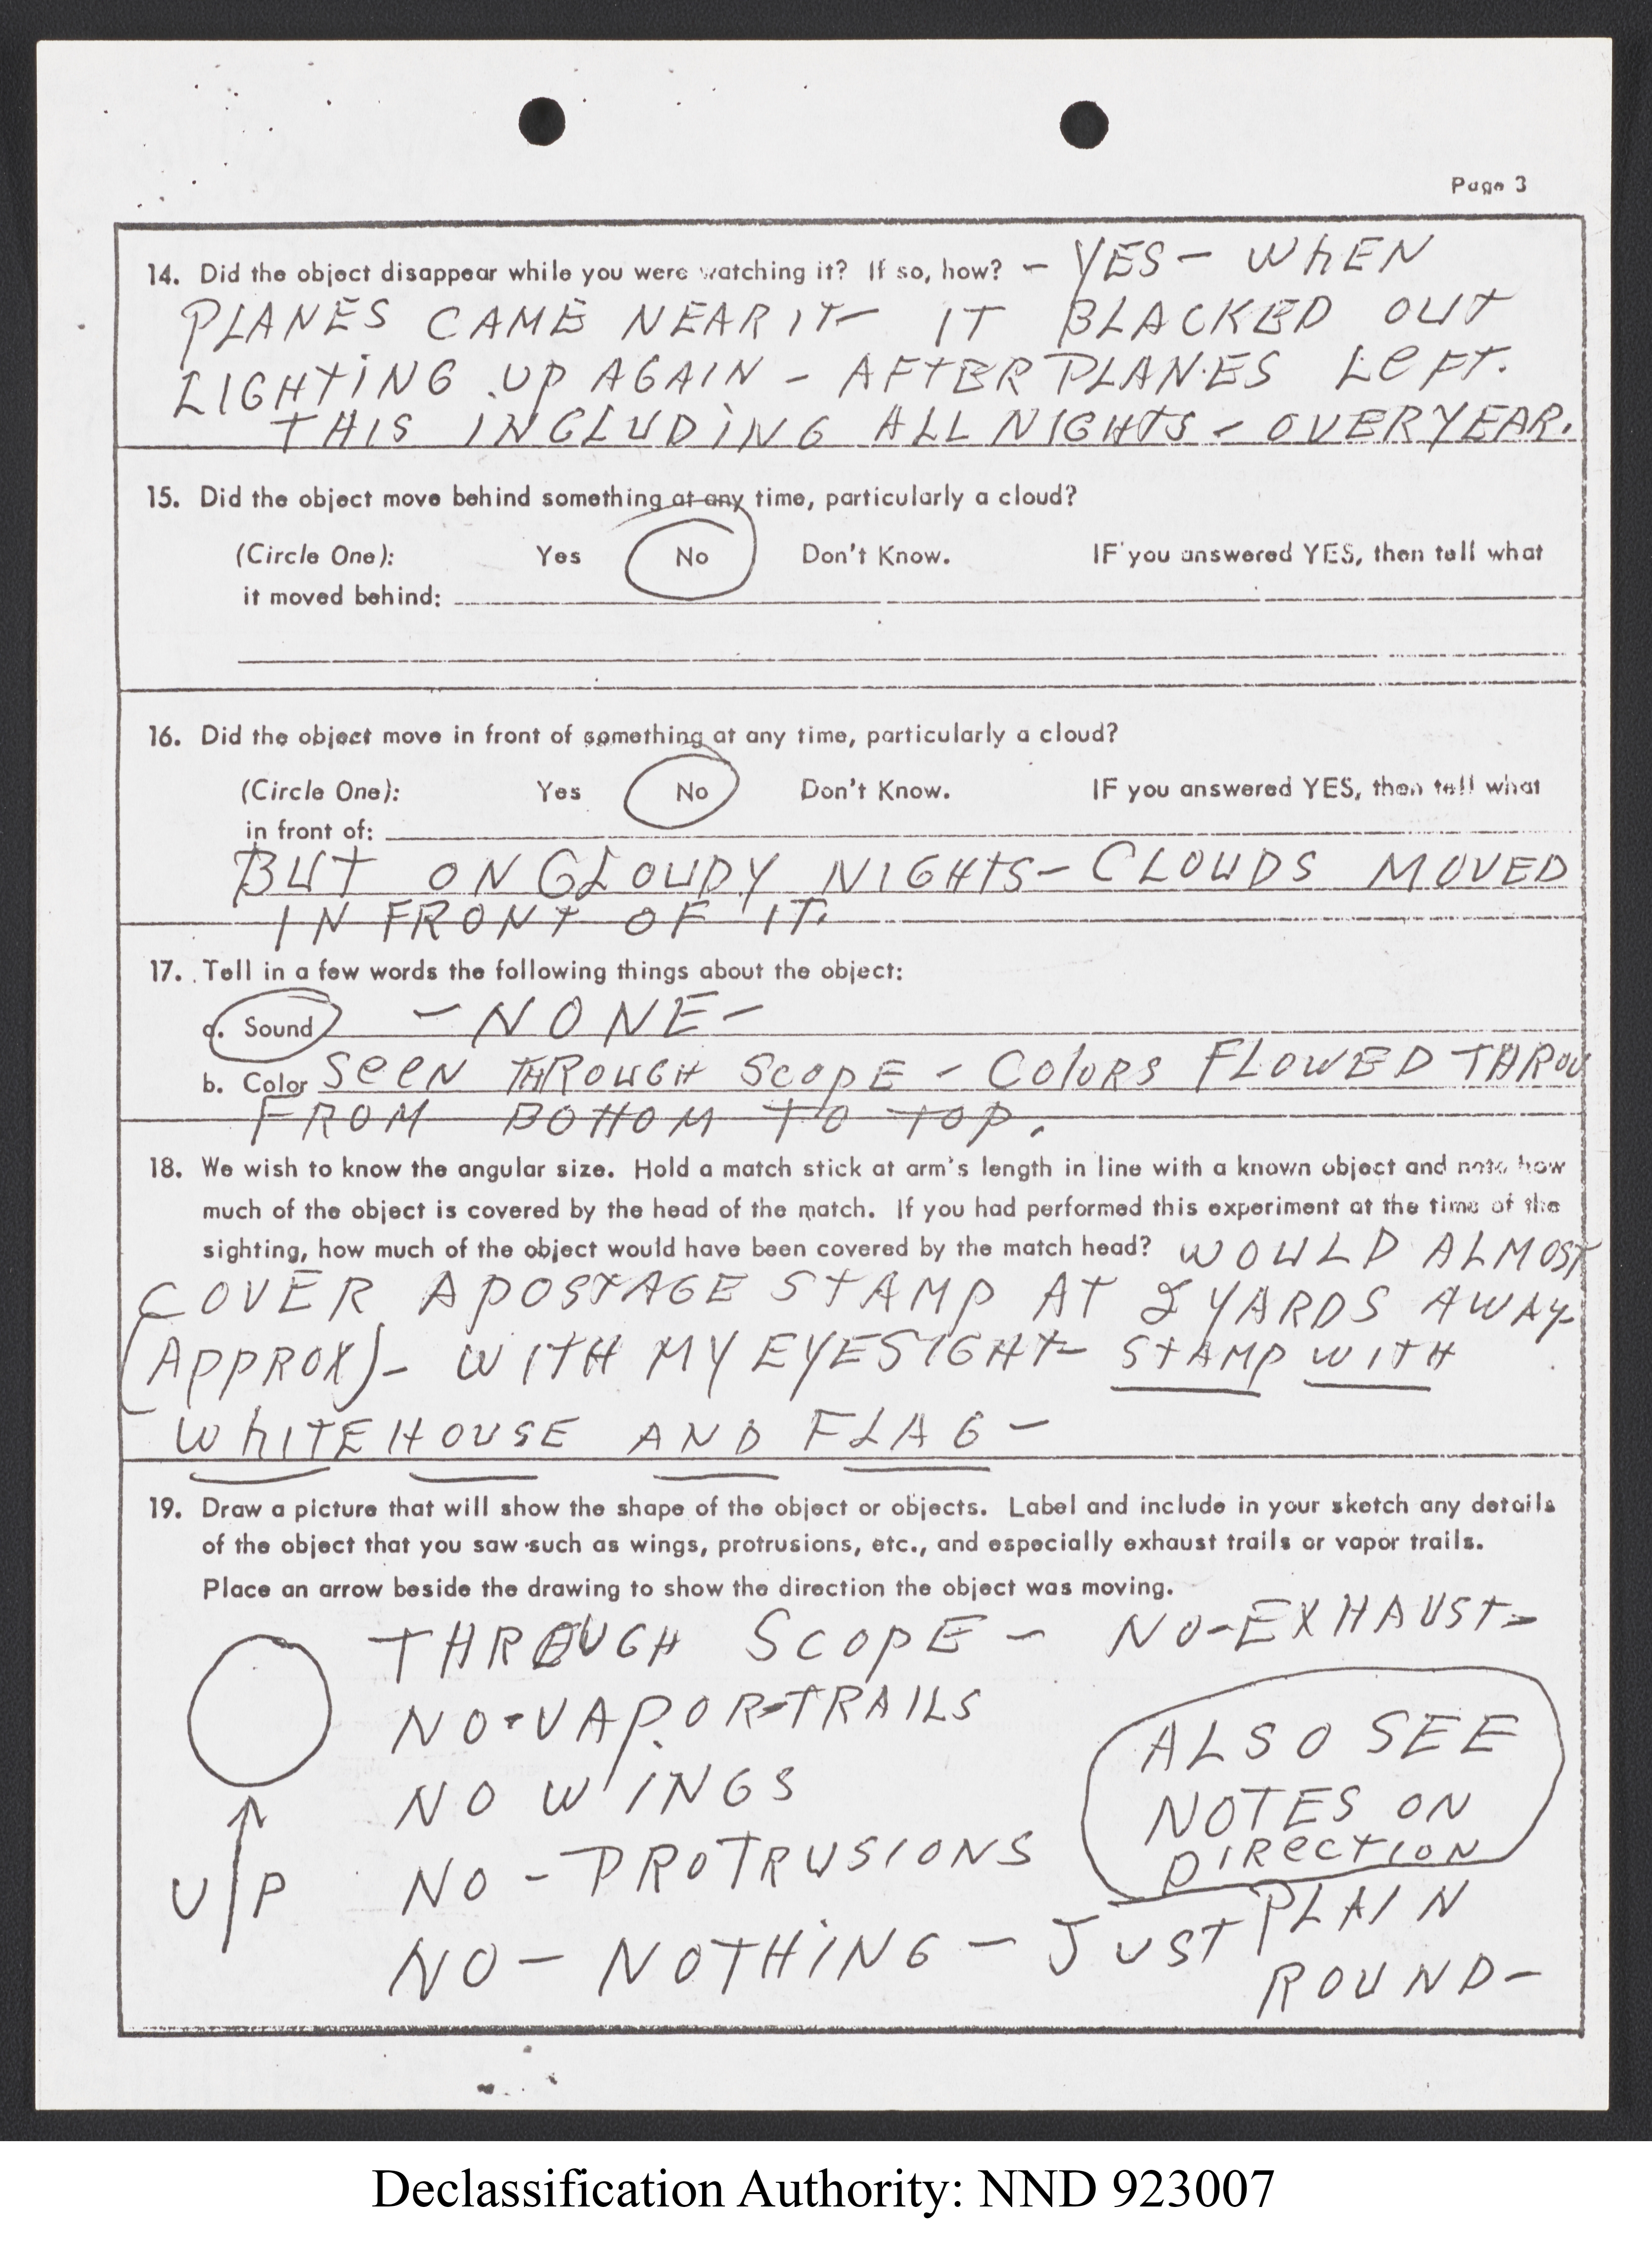 Page 3
14. Did the object disappear while you were watching it? If so, how? - YES - WHEN
PLANES CAME NEAR IT- IT BLACKED OUT
LIGHTING UP AGAIN - AFTER PLANES LEFT.
THIS INCLUDING ALL NIGHTS - OVER YEAR.
15. Did the object move behind something at any time, particularly a cloud?
(Circle One): Yes No Don't Know. IF you answered YES, then tell what
it moved behind:
16. Did the object move in front of something at any time, particularly a cloud?
(Circle One): Yes No Don't Know. IF you answered YES, then tell what
in front of:
BUT ON CLOUDY NIGHTS - CLOUDS MOVED
IN FRONT OF IT.
17. Tell in a few words the following things about the object:
a. Sound - NONE -
b. Color SEEN THROUGH SCOPE - COLORS FLOWED THROU
FROM BOTTOM TO TOP.
18. We wish to know the angular size. Hold a match stick at arm's length in line with a known object and note how
much of the object is covered by the head of the match. If you had performed this experiment at the time of the
sighting, how much of the object would have been covered by the match head? WOULD ALMOST
COVER A POSTAGE STAMP AT 2 YARDS AWAY-
(APPROX)- WITH MY EYESIGHT- STAMP WITH
WHITEHOUSE AND FLAG -
19. Draw a picture that will show the shape of the object or objects. Label and include in your sketch any details
of the object that you saw such as wings, protrusions, etc., and especially exhaust trails or vapor trails.
Place an arrow beside the drawing to show the direction the object was moving.
THROUGH SCOPE - NO-EXHAUST-
NO-VAPOR-TRAILS
NO WINGS
NO - PROTRUSIONS
NO - NOTHING - JUST PLAIN
ROUND-
ALSO SEE
NOTES ON
DIRECTION
UP
Declassification Authority: NND 923007